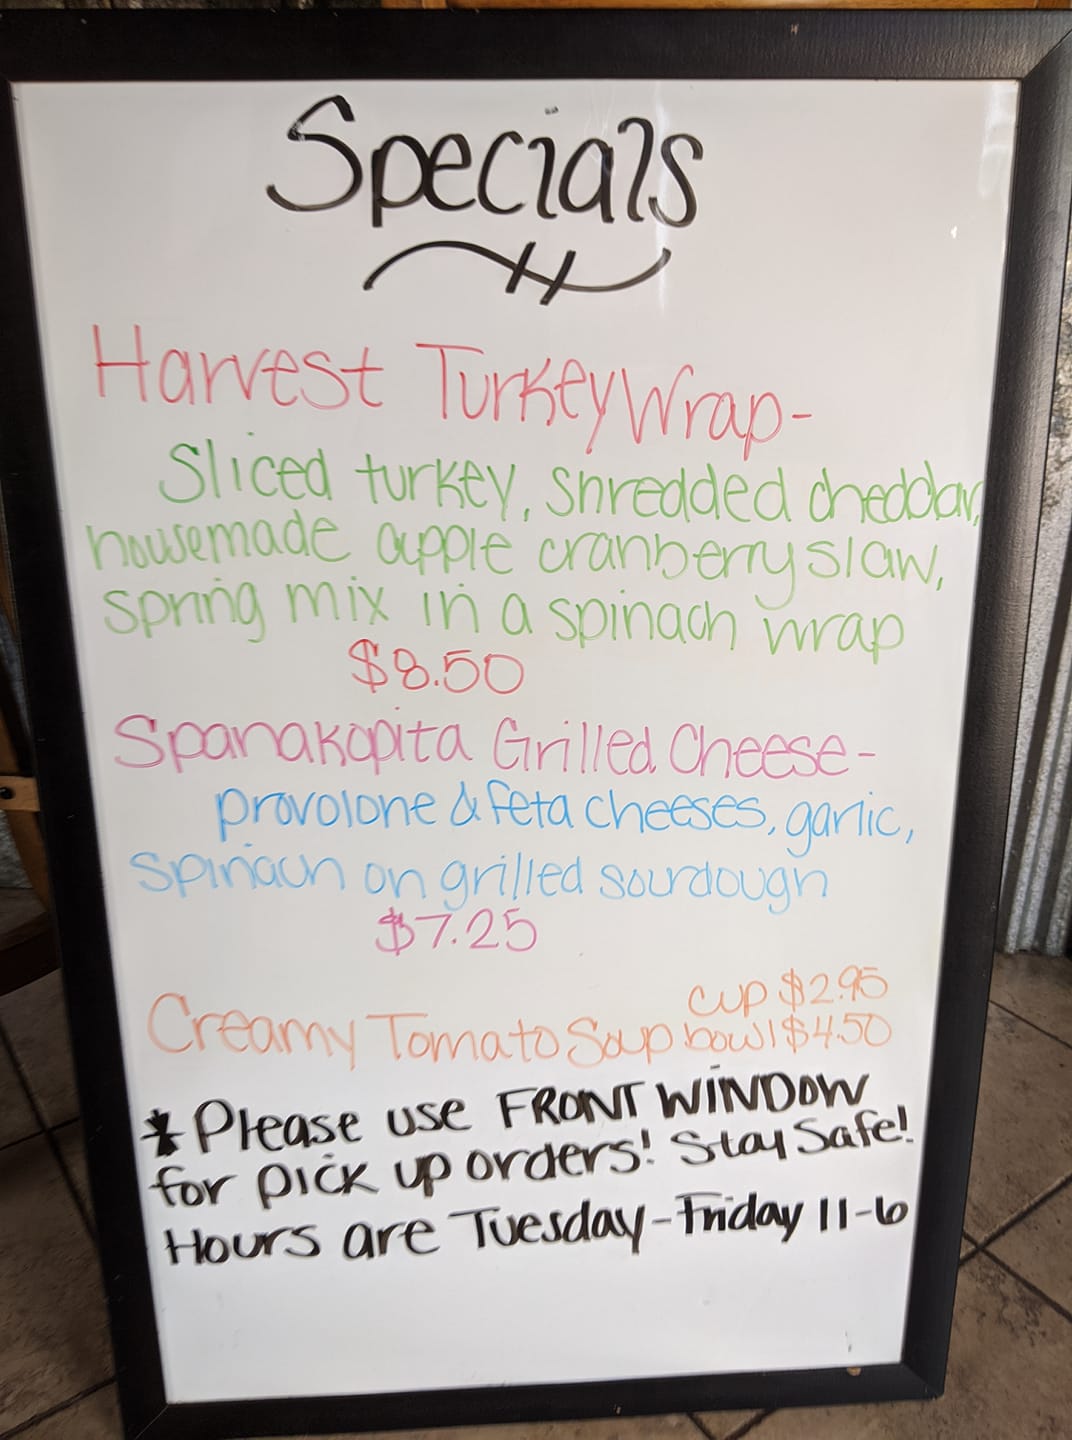 Specials
Harvest Turkey Wrap-
Sliced turkey, shredded cheddar,
housemade apple cranberry slaw,
spring mix in a spinach wrap
$8.50
Spanakopita Grilled Cheese-
provolone & feta cheeses, garlic,
spinach on grilled sourdough
$7.25
cup $2.95
Creamy Tomato Soup bowl $4.50
* Please use FRONT WINDOW
for pick up orders! Stay Safe!
Hours are Tuesday-Friday 11-6